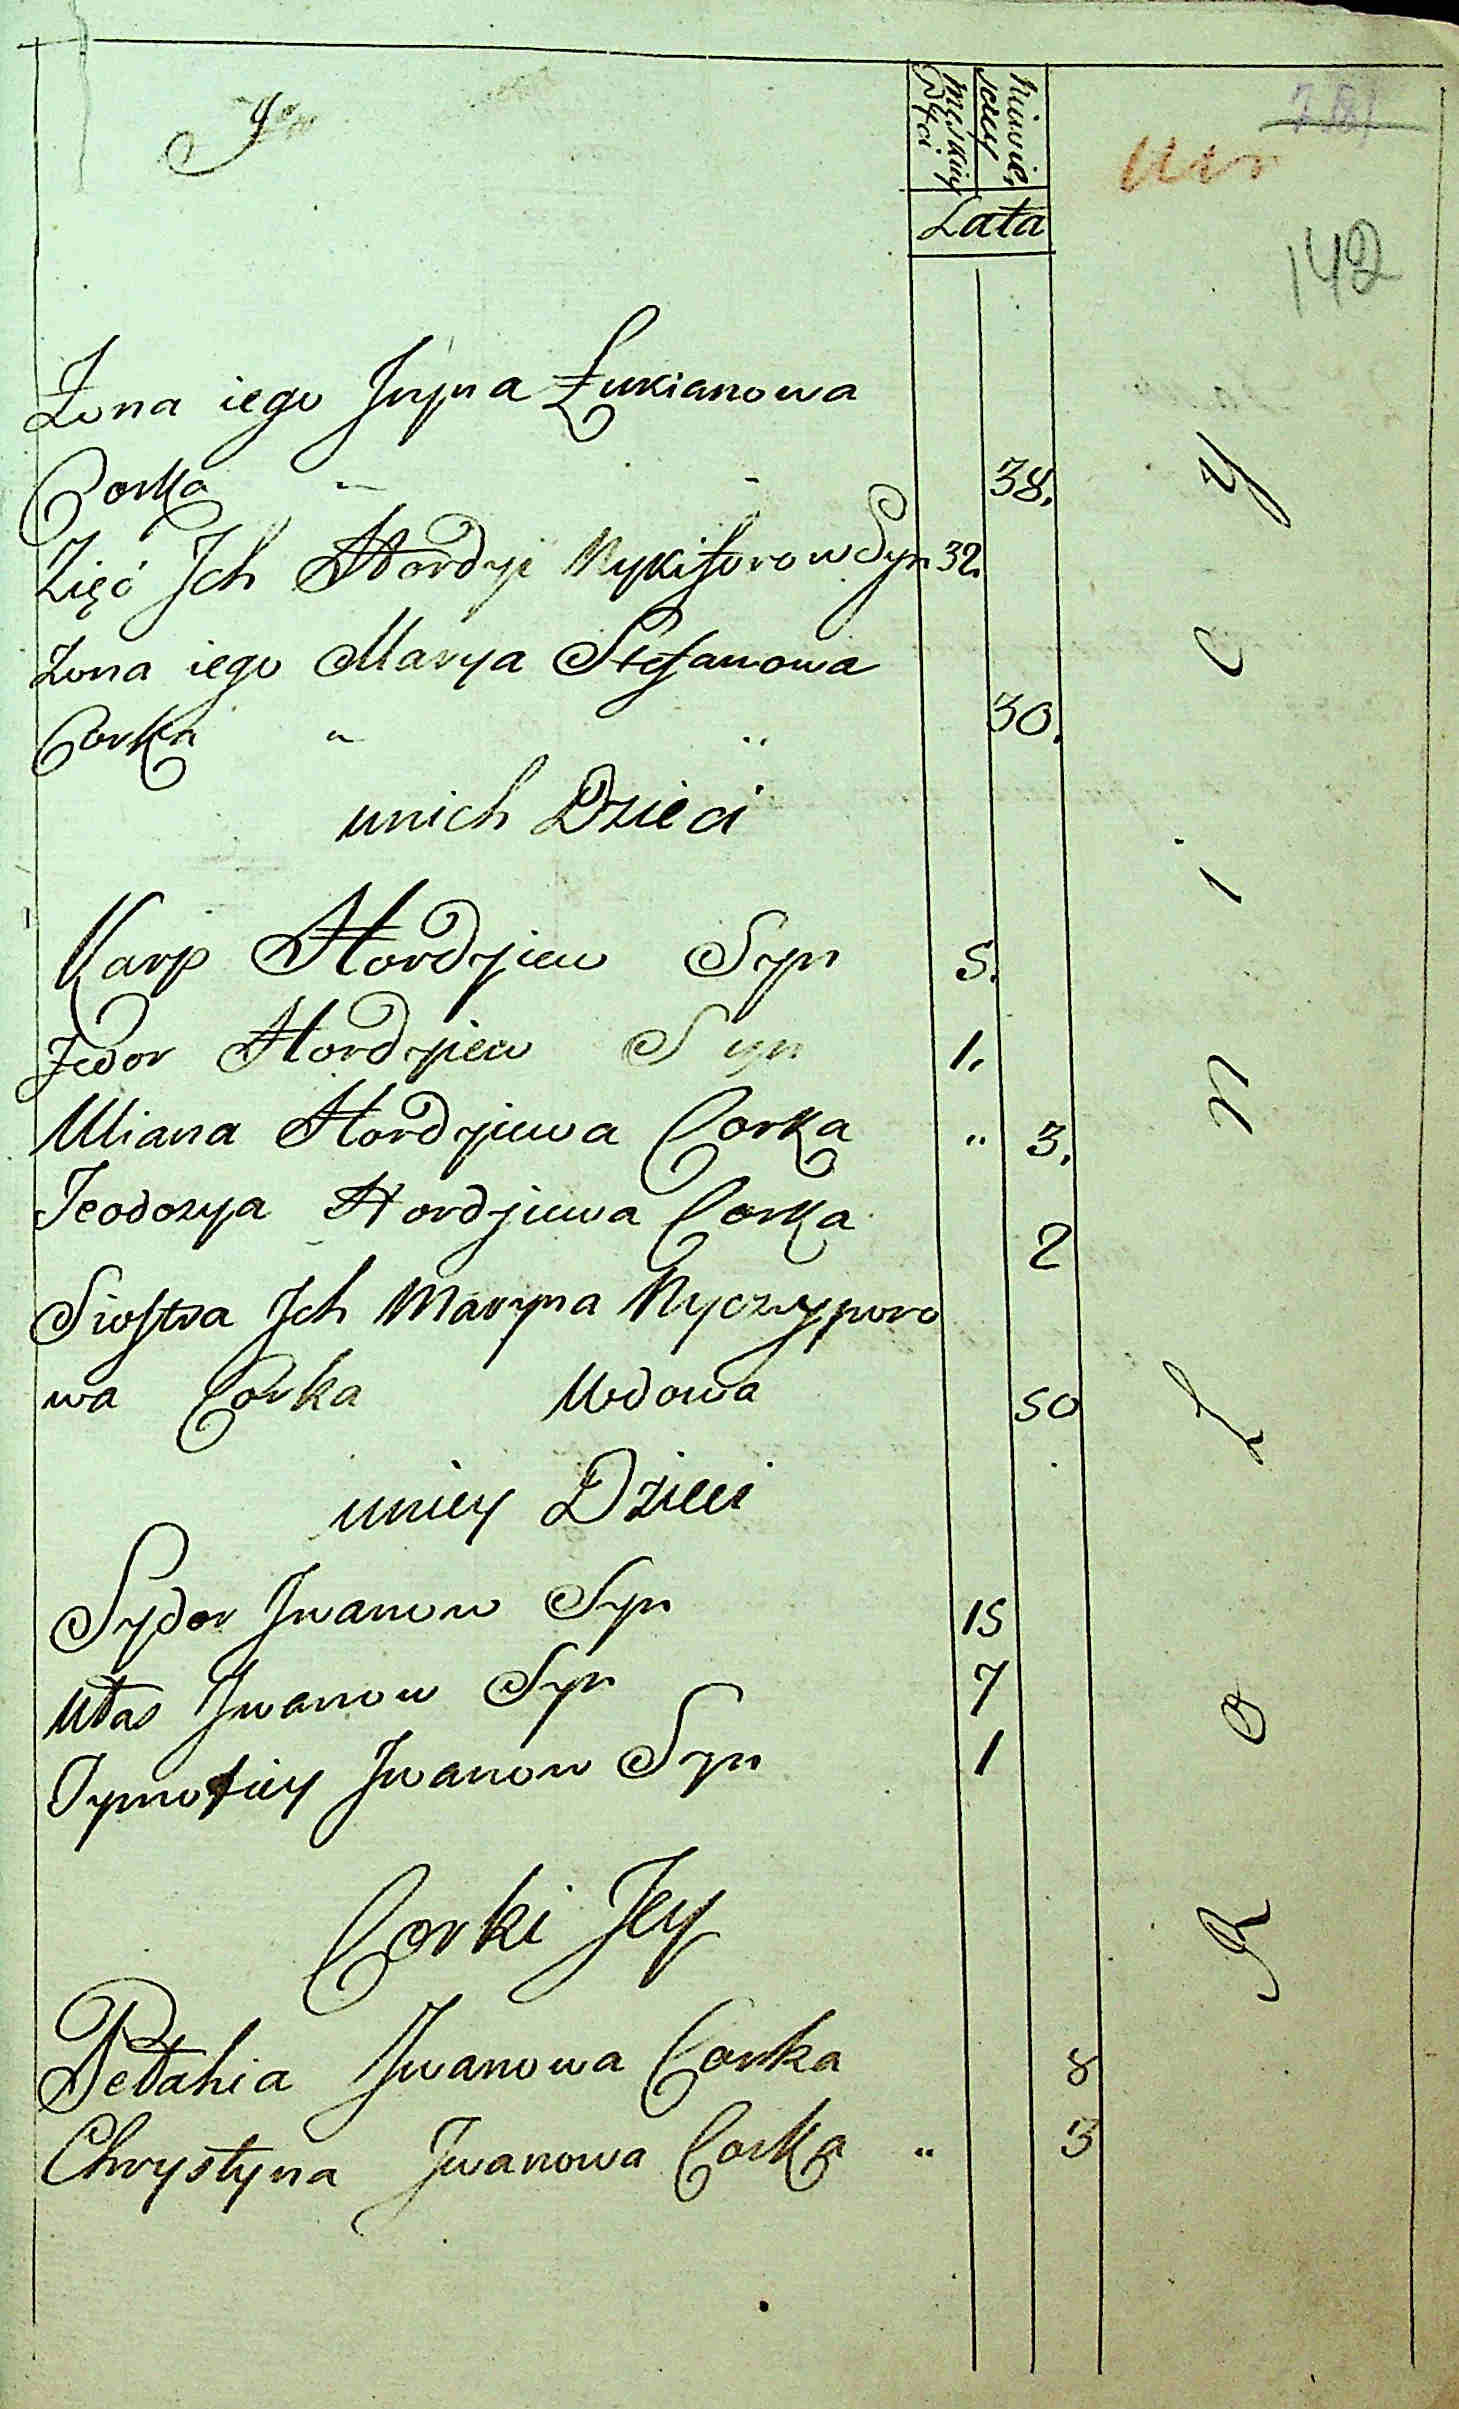 Męskiey Płci
Niewiesciey
Lata
142
Żona iego Jryna Łukianowa
Corka " " 38.
Zięć Jch Hordyi Nykiforow Syn 32.
Żona iego Marya Stefanowa
Corka " " 30.
unich Dzieci
Karp Hordyiew Syn 5.
Fedor Hordyiew Syn 1.
Uliana Hordyiewa Corka " 3.
Teodozya Hordyiewa Corka 2
Siostra Jch Maryna Nyczyporo
wa Corka Wdowa 50
uniey Dzieci
Sydor Jwanow Syn 15
Włas Jwanow Syn 7
Tymofiey Jwanow Syn 1
Corki Jey
Pełahia Jwanowa Corka 8
Chrystyna Jwanowa Corka " 3
Rolnicy